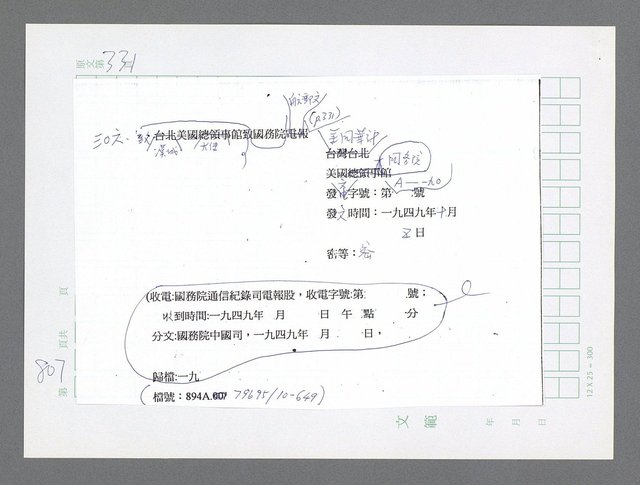 原文第331
自文郵文
(p331)
三〇六、
台北美國總領事館致國務院電報
漢城 大使
台灣台北
美國總領事館
發電字號：第 號
A—一九〇
發文時間：一九四九年十月
五日
密等：密
(收電:國務院通信紀錄司電報股，收電字號:第 號；
收到時間:一九四九年 月 日 午 點 分
分文:國務院中國司，一九四九年 月 日，
歸檔:一九
(檔號：894A.00/ 79695/10-649)
頁
頁共
807
第
12 X 25 = 300
文範
年 月 日